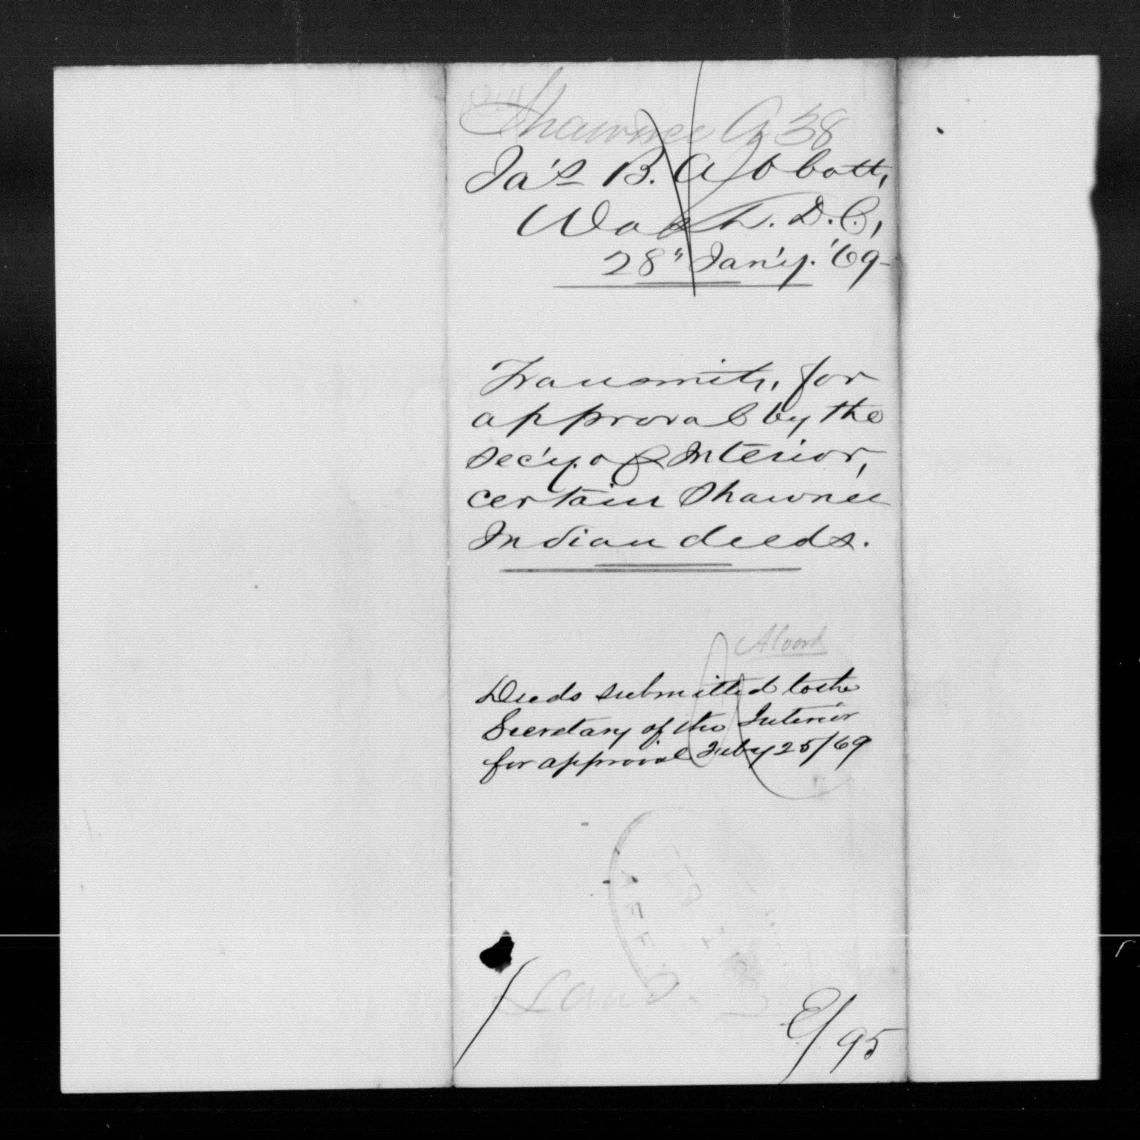 Shawnee A 38
Ja's B. Abbott,
Wash. D.C.,
28" Jan'y. '69-
Transmits, for
approval by the
Sec'y. of Interior,
certain Shawnee
Indian deeds.
Alvord
Deeds submitted to the
Secretary of the Interior
for approval Feby 25/69
AFF
Land
E/95